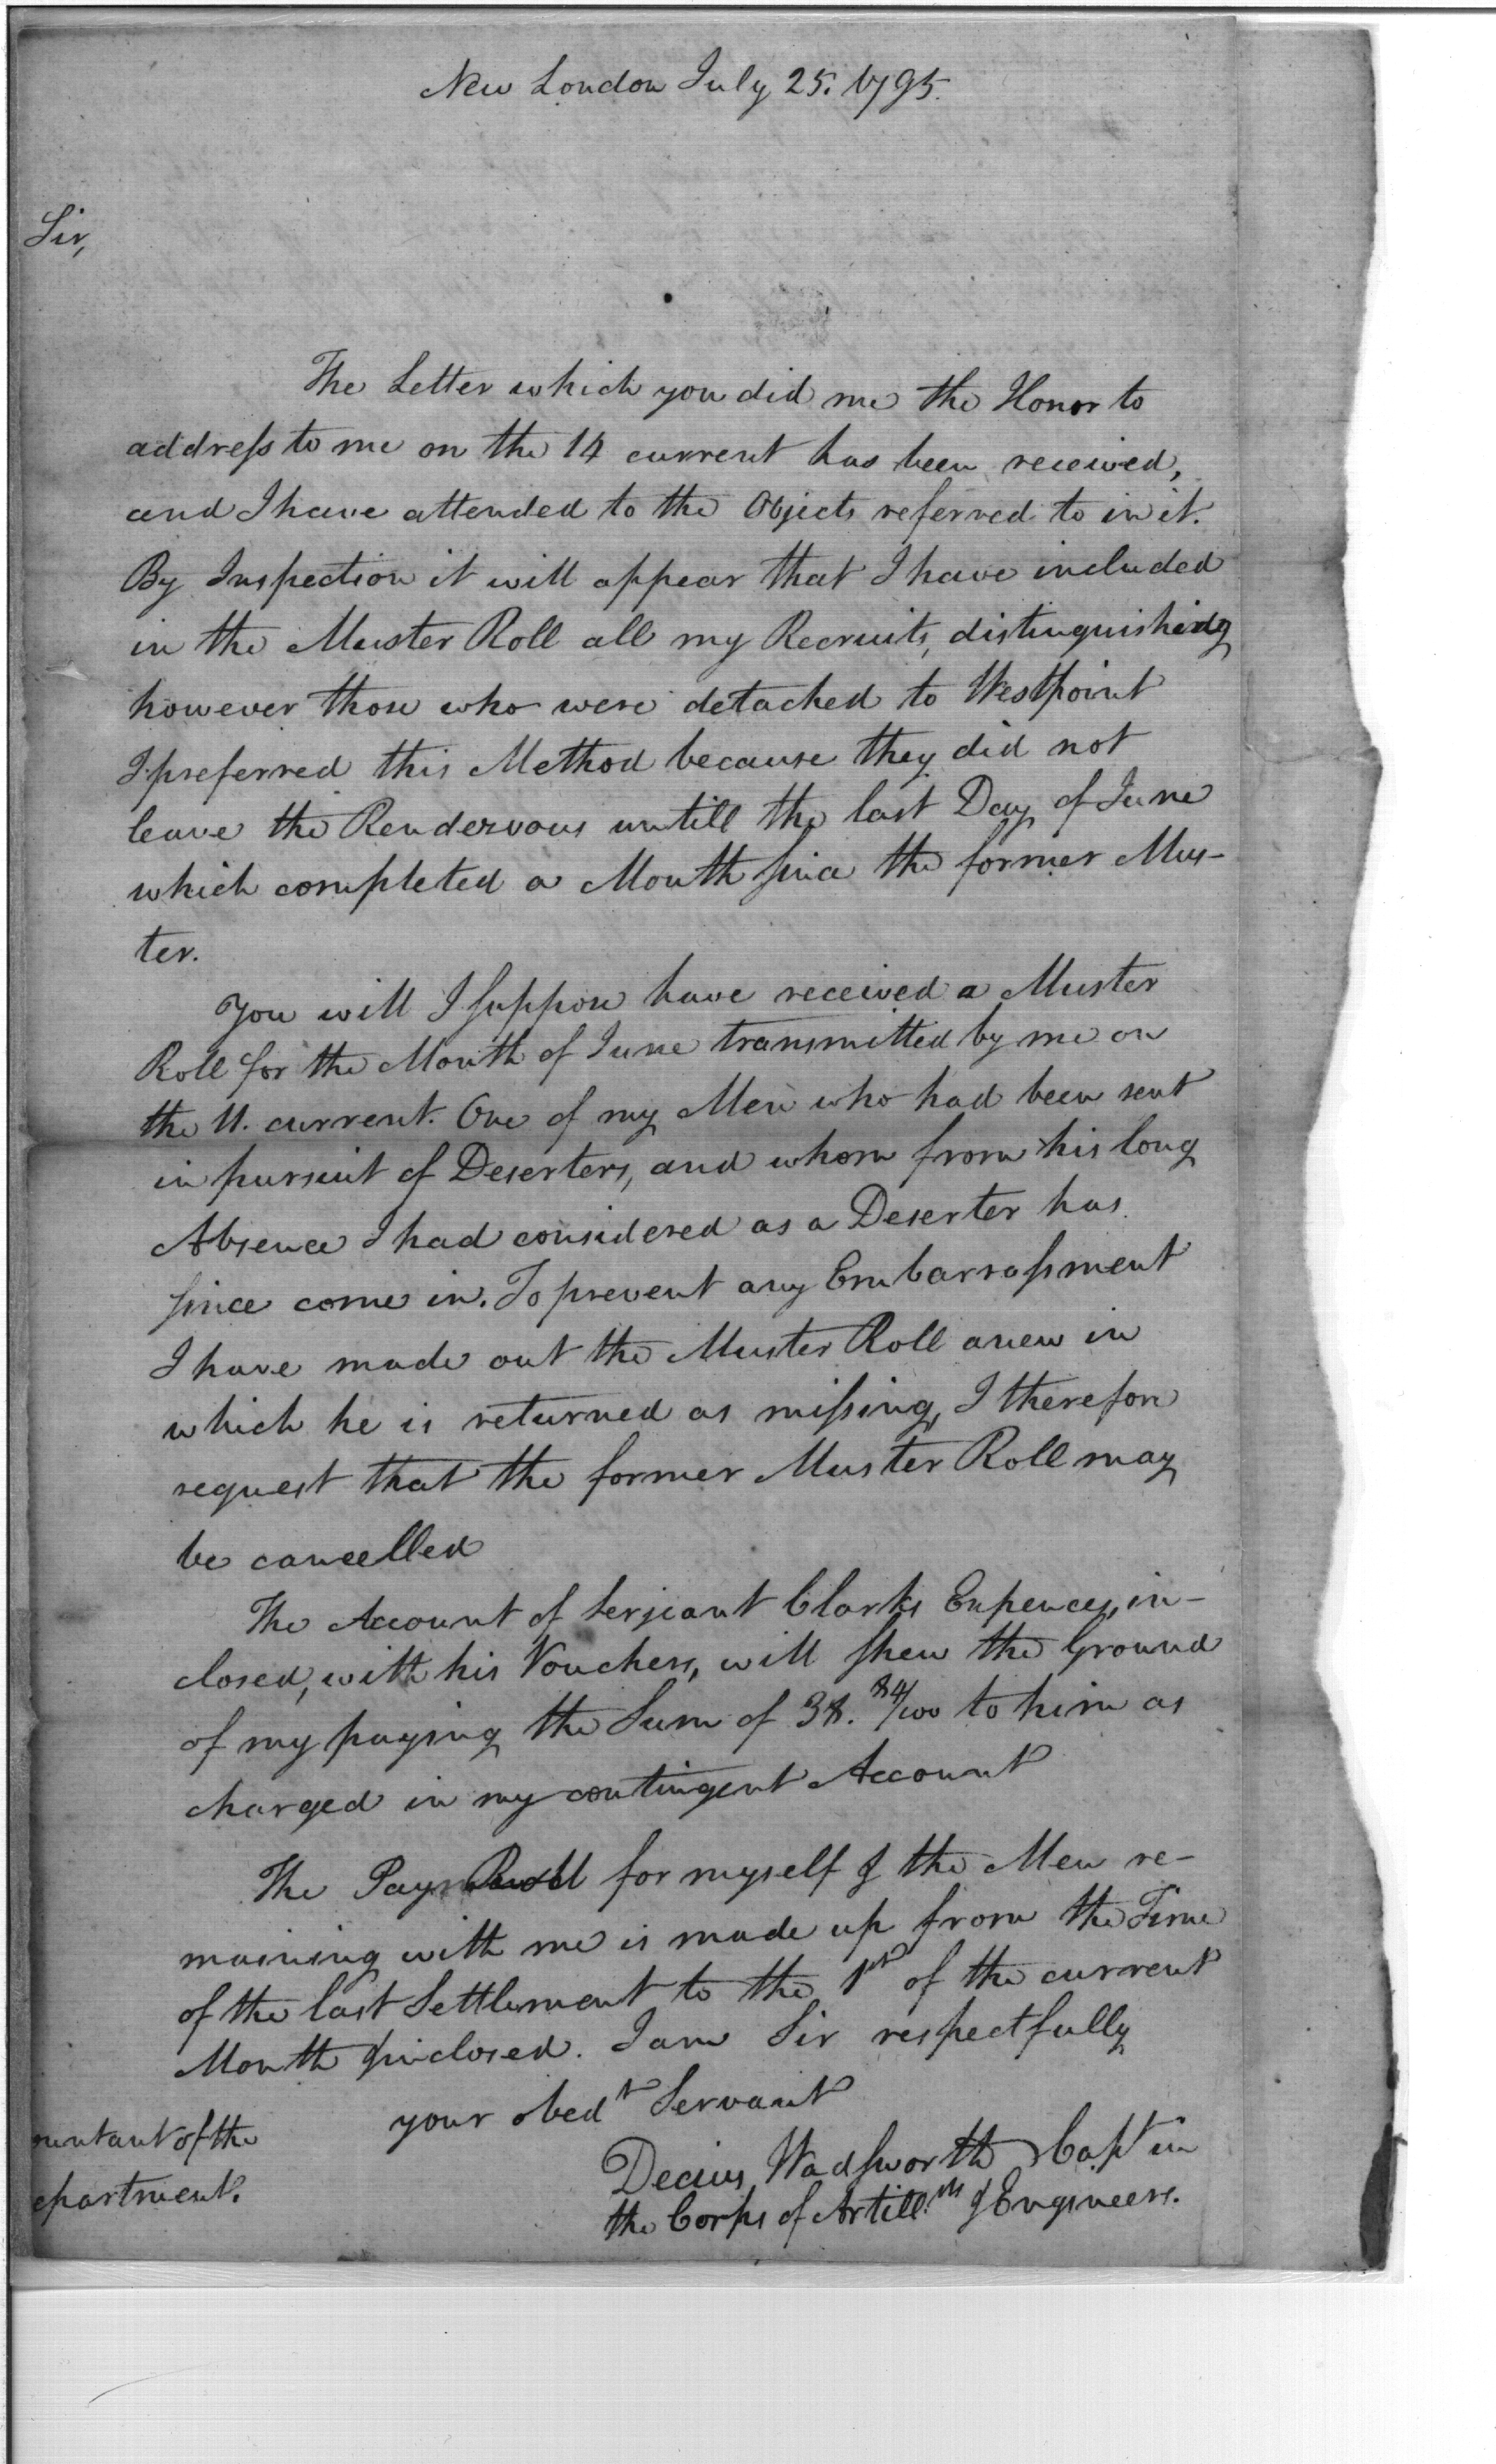 New London July 25. 1795.
Sir,
The Letter which you did me the Honor to
address to me on the 14 current has been received,
and I have attended to the Objects referred to in it.
By Inspection it will appear that I have included
in the Muster Roll all my Recruits, distinguishing
however those who were detached to Westpoint
I preferred this Method because they did not
leave the Rendezvous untill the last Day of June
which completed a Month since the former Mus-
ter.
You will I suppose have received a Muster
Roll for the Month of June transmitted by me on
the 11. current. One of my Men who had been sent
in pursuit of Deserters, and whom from his long
Absence I had considered as a Deserter has
since come in. To prevent any Embarrassment
I have made out the Muster Roll anew in
which he is returned as missing, I therefore
request that the former Muster Roll may
be cancelled
The Account of Serjeant Clarks Expences, in-
closed, with his Vouchers, will shew the Ground
of my paying the Sum of 38. 84/100 to him as
charged in my contingent Account
The Pay Roll for myself & the Men re-
maining with me is made up from the Time
of the last Settlement to the 1st of the current
Month & inclosed. I am Sir respectfully
your obedt Servant
Decius Wadsworth Capt in
the Corps of Artillsts & Engineers.
ountant of the
epartment.